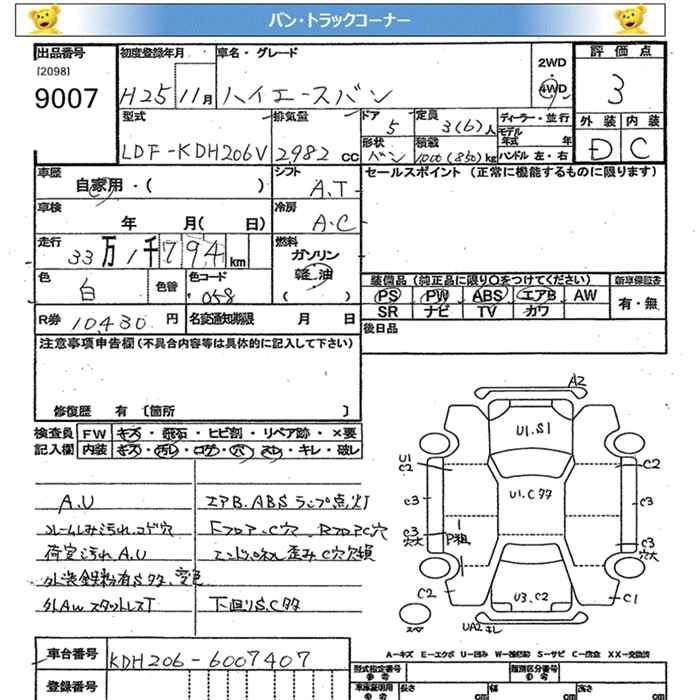 バン・トラックコーナー
出品番号
[2098]
9007
初度登録年月
H25 11月
車名・グレード
ハイエースバン
2WD
4WD
評価点
3
型式
LDF-KDH206V
排気量
2,982 cc
ドア
5
形状
バン
定員
3(6)人
積載
1000(850)kg
ディーラー・並行
モデル年式 年
ハンドル 左・右
外装 内装
D C
車歴
自家用・( )
シフト
A.T
セールスポイント (正常に機能するものに限ります)
車検
年 月( 日)
冷房
A.C
走行
33万1千794km
燃料
ガソリン
軽油
( )
色
白
色替
色コード
058
装備品 (純正品に限り○をつけてください)
新車保証書
PS PW ABS エアB AW
有・無
SR ナビ TV カワ
R券 10,430円
名変通知期限 月 日
後日品
注意事項申告欄 (不具合内容等は具体的に記入して下さい)
修復歴 有 〔箇所 〕
検査員 FW キズ・飛石・ヒビ割・リペア跡・×要
記入欄 内装 キズ・汚レ・コゲ・穴・スレ・キレ・破レ
A.U
エアB.ABSランプ点灯
コレームしみ汚れ.コゲ穴
Fフロア.C穴.RフロアC穴
荷室汚れ A.U
エンドパネル歪みC穴欠損
外装鉄粉有Sタタ.変色
外Awスタットレス T
下回りS.Cタタ
A2
U1.S1
U1
C2
C2
U1.Cタタ
C3
C3
C3
穴大
P粗
C3
穴大
C2
U3.C2
C1
スペ
UA2キレ
A-キズ E-エクボ U-凹み W-補修跡 S-サビ C-腐食 XX-交換済
車台番号
KDH206-6007407
登録番号
型式指定番号
参考
類別区分番号
参考
車庫証明用
参考
長さ cm
幅 cm
高さ cm